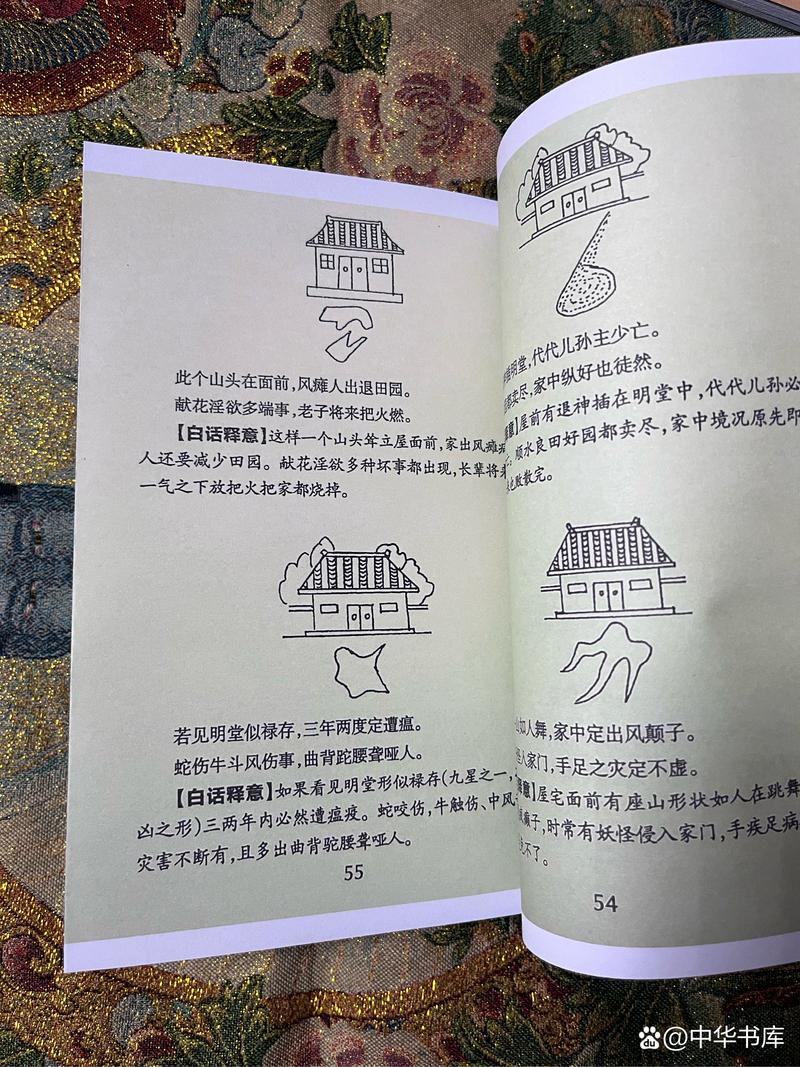 此个山头在面前,风瘫人出退田园。
献花淫欲多端事,老子将来把火燃。
【白话释意】这样一个山头耸立屋面前,家出风瘫
人还要减少田园。献花淫欲多种坏事都出现,长辈将
一气之下放把火把家都烧掉。
若见明堂似禄存,三年两度定遭瘟。
蛇伤牛斗风伤事,曲背跎腰聋哑人。
【白话释意】如果看见明堂形似禄存(九星之一,
凶之形)三两年内必然遭瘟疫。蛇咬伤,牛触伤、中风
灾害不断有,且多出曲背驼腰聋哑人。
55
明堂,代代儿孙主少亡。
卖尽,家中纵好也徒然。
意】屋前有退神插在明堂中,代代儿孙必
。顺水良田好园都卖尽,家中境况原先即
也败散完。
如人舞,家中定出风颠子。
怪人家门,手足之灾定不虚。
释意】屋宅面前有座山形状如人在跳舞
癫子,时常有妖怪侵入家门,手疾足病
不了。
54
@中华书库